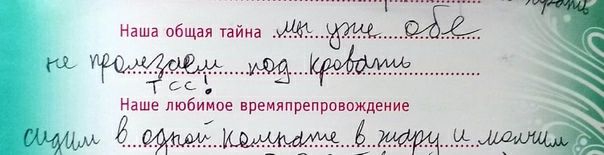 Наша общая тайна мы уже обе
не пролезаем под кровать
ТСС!
Наше любимое времяпрепровождение
сидим в одной комнате в жару и молчим